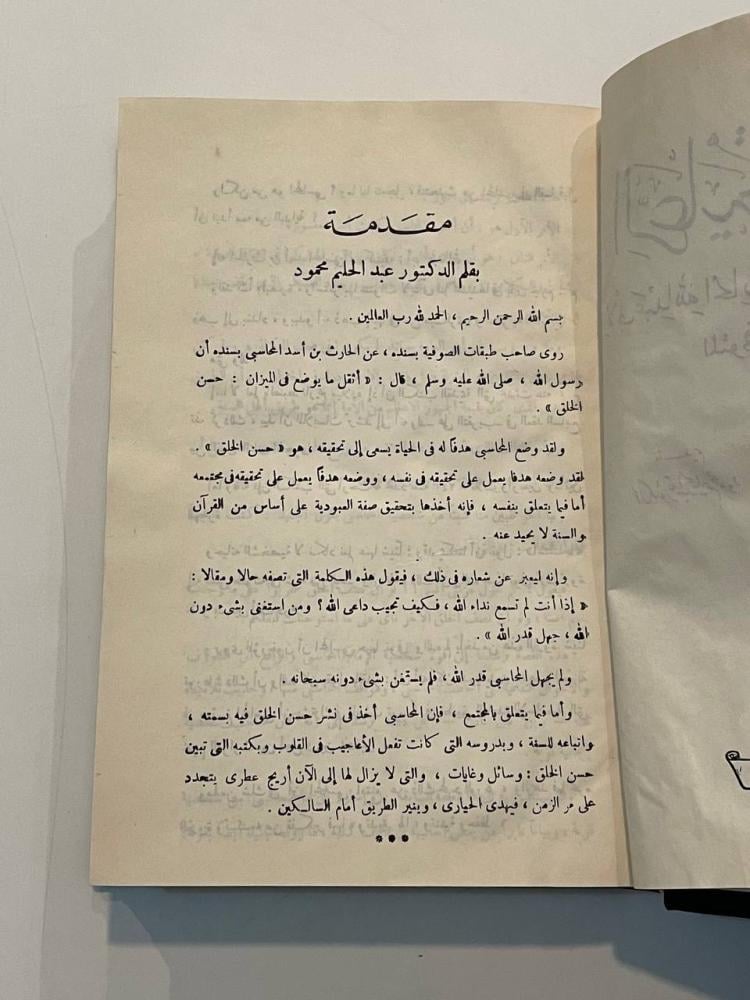 مقدمة
بقلم الدكتور عبد الحليم محمود
بسم الله الرحمن الرحيم ، الحمد لله رب العالمين .
روى صاحب طبقات الصوفية بسنده ، عن الحارث بن أسد المحاسبى بسنده أن
رسول الله ، صلى الله عليه وسلم ، قال : « أثقل ما يوضع فى الميزان : حسن
الخلق » .
ولقد وضع المحاسبى هدفاً له فى الحياة يسعى إلى تحقيقه ، هو « حسن الخلق » .
لقد وضعه هدفا يعمل على تحقيقه فى نفسه ، ووضعه هدفاً يعمل على تحقيقه فى مجتمعه
أما فيما يتعلق بنفسه ، فإنه أخذها بتحقيق صفة العبودية على أساس من القرآن
والسنة لا يحيد عنه .
وإنه ليعبر عن شعاره فى ذلك ، فيقول هذه الكلمة التى تصفه حالا ومقالا :
« إذا أنت لم تسمع نداء الله ، فكيف تجيب داعى الله ؟ ومن استغنى بشىء دون
الله ، جهل قدر الله » .
ولم يجهل المحاسبى قدر الله ، فلم يستغن بشىء دونه سبحانه .
وأما فيما يتعلق بالمجتمع ، فإن المحاسبى أخذ فى نشر حسن الخلق فيه بسمته ،
واتباعه للسنة ، وبدروسه التى كانت تفعل الأعاجيب فى القلوب وبكتبه التى تبين
حسن الخلق : وسائل وغايات ، والتى لا يزال لها إلى الآن أريج عطرى يتجدد
على مر الزمن ، فيهدى الحيارى ، وينير الطريق أمام السالكين .
***